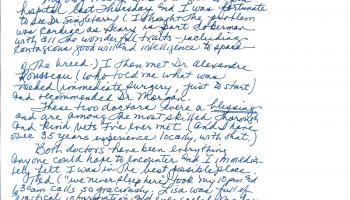 hospital last Thursday and I was fortunate
to see Dr Singletary (I thought the problem
was cardiac as Henry is part doberman
with all the wonderful traits - including
contagious good will and intelligence to spare -
of the breed.) I then met Dr Alexandre
Rousseau (who told me what was
needed (immediate surgery, just to start)
and recommended Dr Morgan.
These two doctors were a blessing
and are among the most skilled, thorough
and kind vets I've ever met. (and I have
over 35 years experience locally, with that.)
Both doctors have been everything
anyone could hope to encounter and I immedia-
tely felt I was in the best possible place.
("we never sleep here") took my 10pm and
6:30am calls so graciously. Lisa was full of
practical information and ever